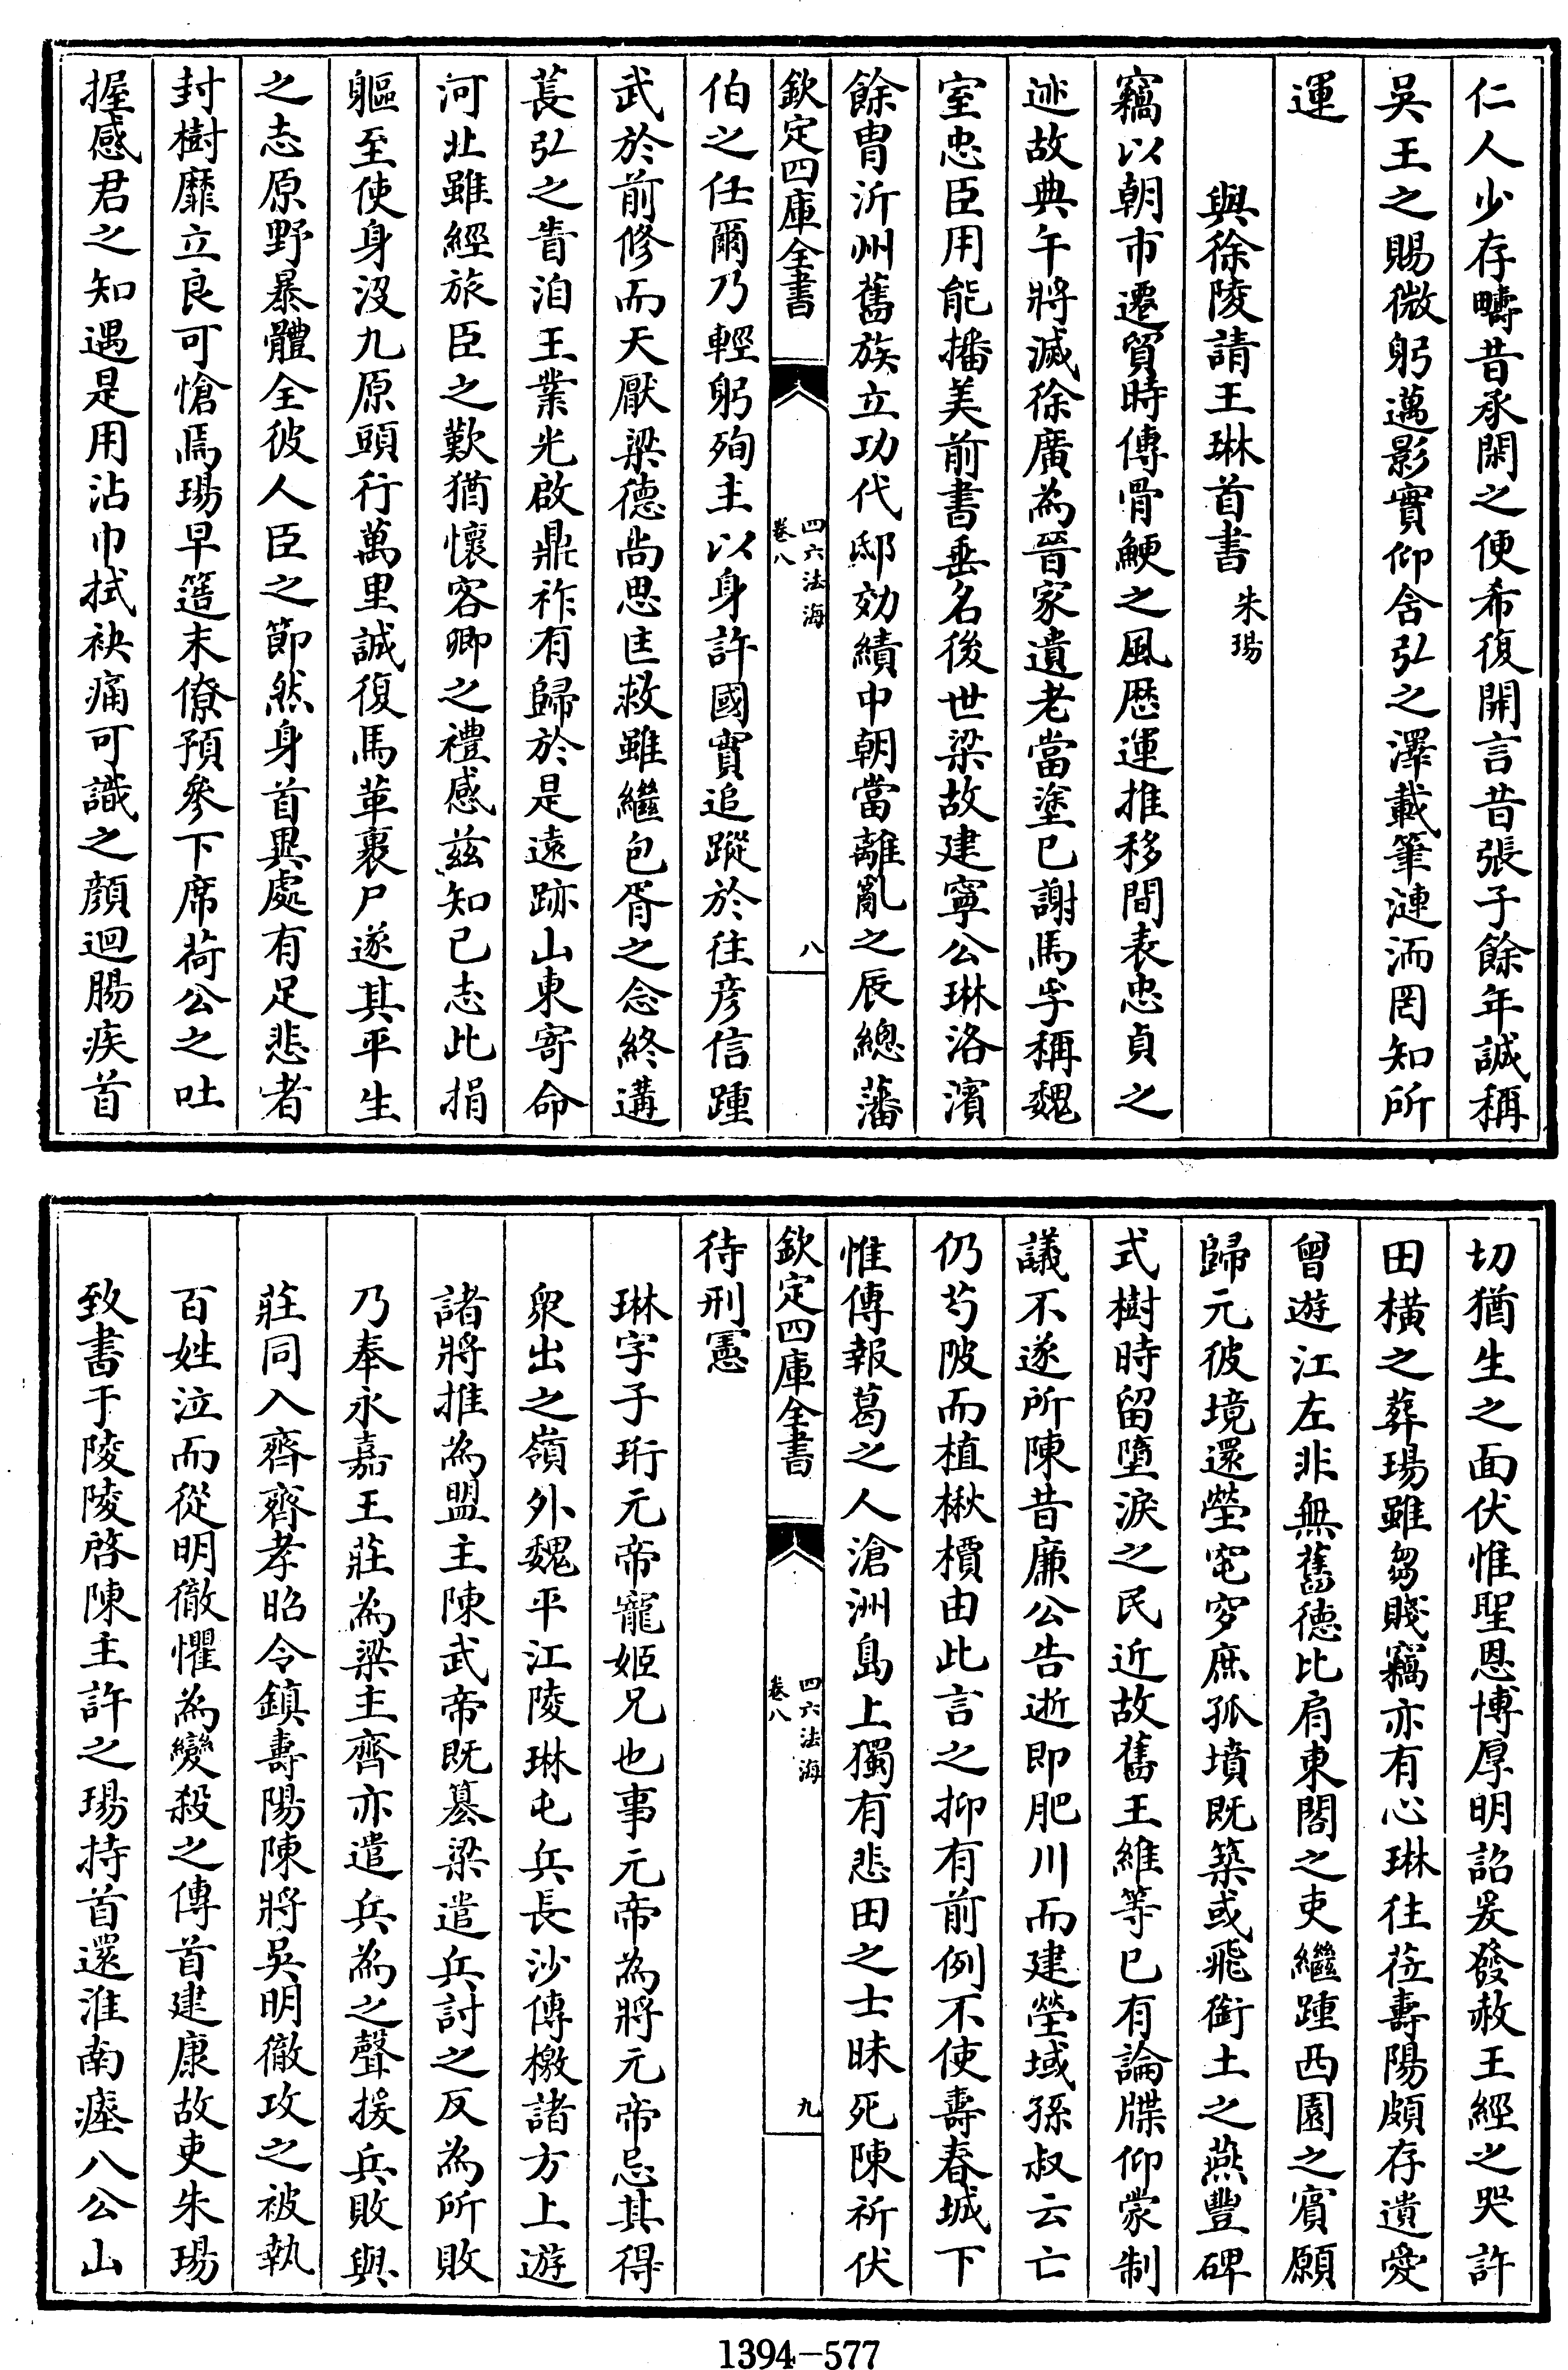 仁人少存疇昔承閑之便希復開言昔張子餘年誠稱
吳王之賜微躬邁影實仰含弘之澤載筆漣洏罔知所
運
與徐陵請王琳首書 朱瑒
竊以朝市遷貿時傳骨鯁之風歴運推移間表忠貞之
迹故典午將滅徐廣為晉家遺老當塗已謝馬孚稱魏
室忠臣用能播美前書垂名後世梁故建寧公琳洛濱
餘胄沂州舊族立功代邸効績中朝當離亂之辰總藩
欽定四庫全書 四六法海 卷八 八
伯之任爾乃輕躬殉主以身許國實追蹤於往彦信踵
武於前修而天厭梁德尚思匡救雖繼包胥之念終遘
萇弘之眚洎王業光啟鼎祚有歸於是遠跡山東寄命
河北雖經旅臣之歎猶懷客卿之禮感兹知己志此捐
軀至使身沒九原頭行萬里誠復馬革裹尸遂其平生
之志原野暴體全彼人臣之節然身首異處有足悲者
封樹靡立良可愴焉瑒早簉末僚預參下席荷公之吐
握感君之知遇是用沾巾拭袂痛可識之顔迴腸疾首
切猶生之面伏惟聖恩博厚明詔爰發赦王經之哭許
田横之葬瑒雖芻賤竊亦有心琳往莅壽陽頗存遺愛
曾遊江左非無舊德比肩東閣之吏繼踵西園之賓願
歸元彼境還塋窀穸庶孤墳既築或飛銜土之燕豐碑
式樹時留墮淚之民近故舊王維等已有論牒仰蒙制
議不遂所陳昔廉公告逝即肥川而建塋域孫叔云亡
仍芍陂而植楸檟由此言之抑有前例不使壽春城下
惟傳報葛之人滄洲島上獨有悲田之士昧死陳祈伏
欽定四庫全書 四六法海 卷八 九
待刑憲
琳字子珩元帝寵姬兄也事元帝為將元帝忌其得
衆出之嶺外魏平江陵琳屯兵長沙傳檄諸方上遊
諸將推為盟主陳武帝既簒梁遣兵討之反為所敗
乃奉永嘉王莊為梁主齊亦遣兵為之聲援兵敗與
莊同入齊齊孝昭令鎮壽陽陳將吳明徹攻之被執
百姓泣而從明徹懼為變殺之傳首建康故吏朱瑒
致書于陵陵啓陳主許之瑒持首還淮南瘞八公山
1394-577